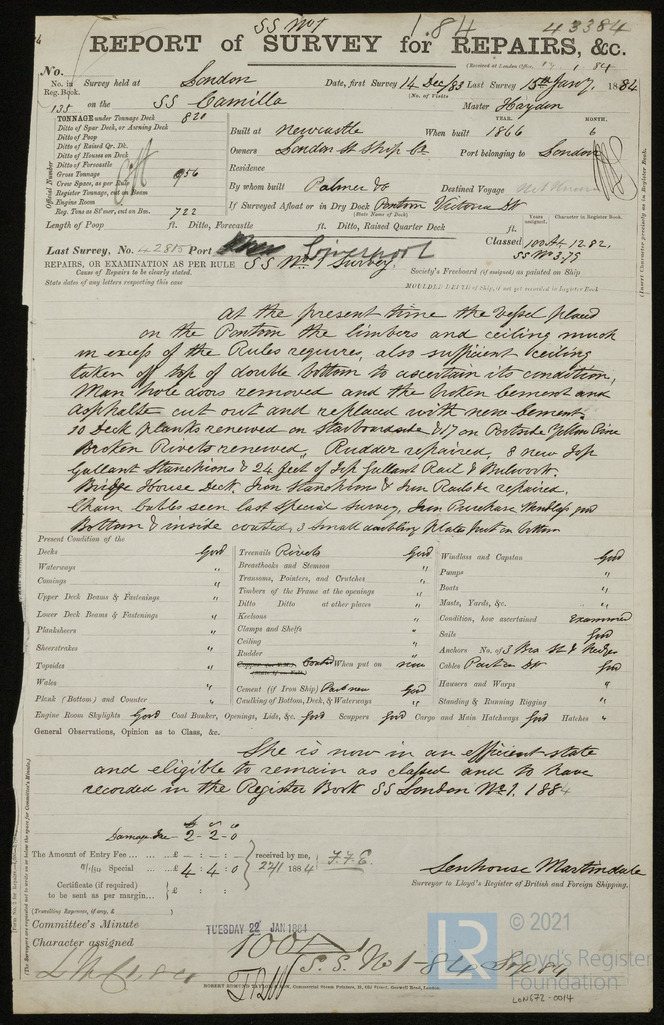 SS No 1 1 84 43384
REPORT of SURVEY for REPAIRS, &c.
(Received at London Office, 1 84
No.
No. in Reg. Book. Survey held at London Date, first Survey 14 Dec/83 Last Survey 15th Jany. 1884
(No. of Visits
135 on the SS Camilla Master Hayden
TONNAGE under Tonnage Deck 820
Ditto of Spar Deck, or Awning Deck
Ditto of Poop
Ditto of Raised Qr. Dk.
Ditto of Houses on Deck
Ditto of Forecastle
Gross Tonnage 956
Crew Space, as per Rule
Register Tonnage, cut on Beam
Engine Room
Reg. Tons as St'mer, cut on Bm. 722
Official Number
YEAR. MONTH.
Built at Newcastle When built 1866 6
Owners London St Ship Co Port belonging to London
Residence
By whom built Palmer & Co Destined Voyage not known
If Surveyed Afloat or in Dry Dock Pontoon Victoria Dk
(State Name of Dock)
Length of Poop ft. Ditto, Forecastle ft. Ditto, Raised Quarter Deck ft.
Years assigned. Character in Register Book.
Classed 100A1 12.82.
SS No 3.79
(Insert Character precisely as in Register Book.)
Last Survey, No. 42815 Port Liverpool
REPAIRS, OR EXAMINATION AS PER RULE SS No 1 Survey.
Cause of Repairs to be clearly stated.
State dates of any letters respecting this case
Society's Freeboard (if assigned) as painted on Ship
MOULDED DEPTH of Ship, if not yet recorded in Register Book
At the present time the vessel placed
on the Pontoon the limbers and ceiling much
in excess of the Rules requires, also sufficient ceiling
taken off top of double bottom to ascertain its condition,
Man hole doors removed and the broken cement and
asphalte cut out and replaced with new Cement.
10 Deck planks renewed on Starboard side & 17 on Port side Yellow Pine
Broken Rivets renewed, Rudder repaired, 8 new Top
Gallant Stanchions & 24 feet of Top Gallant Rail & Bulwork.
Bridge House Deck. Iron Stanchions & Iron Rails &c repaired.
Chain cables seen last Special Survey, Iron Purchase Windlass good
Bottom & inside coated, 3 small doubling plates put on bottom
Present Condition of the
Decks Good
Waterways "
Comings "
Upper Deck Beams & Fastenings "
Lower Deck Beams & Fastenings "
Planksheers "
Sheerstrakes "
Topsides "
Wales "
Plank (Bottom) and Counter "
Treenails Rivets Good
Breasthooks and Stemson "
Transoms, Pointers, and Crutches "
Timbers of the Frame at the openings "
Ditto Ditto at other places "
Keelsons "
Clamps and Shelfs "
Ceiling "
Rudder "
Coated When put on now
Cement (if Iron Ship) Part new Good
Caulking of Bottom, Deck, & Waterways "
Windlass and Capstan Good
Pumps "
Boats "
Masts, Yards, &c. "
Condition, how ascertained Examined
Sails Good
Anchors No. of 3 Bro St & Kedges
Cables Good
Hawsers and Warps "
Standing & Running Rigging "
Engine Room Skylights Good Coal Bunker, Openings, Lids, &c. Good Scuppers Good Cargo and Main Hatchways Good Hatches "
General Observations, Opinion as to Class, &c.
She is now in an efficient state
and eligible to remain as classed and to have
recorded in the Register Book SS London No 1. 1884
£ s d
Damage Fee 2 - 2 - 0
The Amount of Entry Fee ... £ - : - : -
Special ... £ 4 : 4 : 0
received by me, 22/1 1884 F.F.E.
Certificate (if required) £ : :
to be sent as per margin... :
(Travelling Expenses, if any, £ )
Senhouse Martindale
Surveyor to Lloyd's Register of British and Foreign Shipping.
Committee's Minute TUESDAY 22 JAN 1884
Character assigned 100A1
S.S. No 1 - 84
ROBERT EDMUND TAYLOR & SON, Commercial Steam Printers, 19, Old Street, Goswell Road, London.
LR © 2021
Lloyd's Register
Foundation
LON672-0014